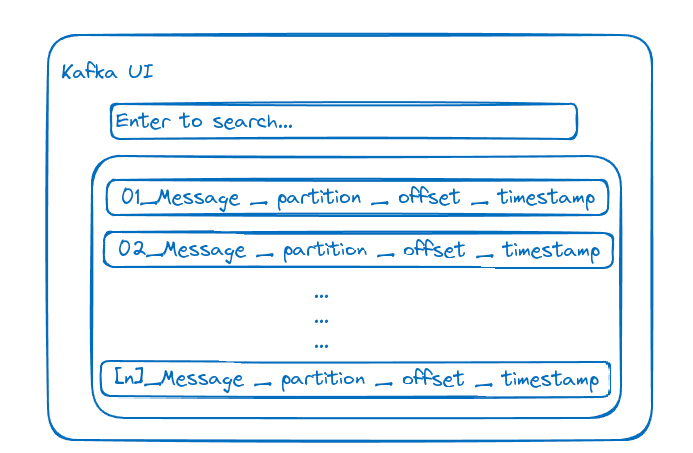 Kafka UI
Enter to search...
01_Message _ partition _ offset _ timestamp
02_Message _ partition _ offset _ timestamp
...
...
...
[n]_Message _ partition _ offset _ timestamp